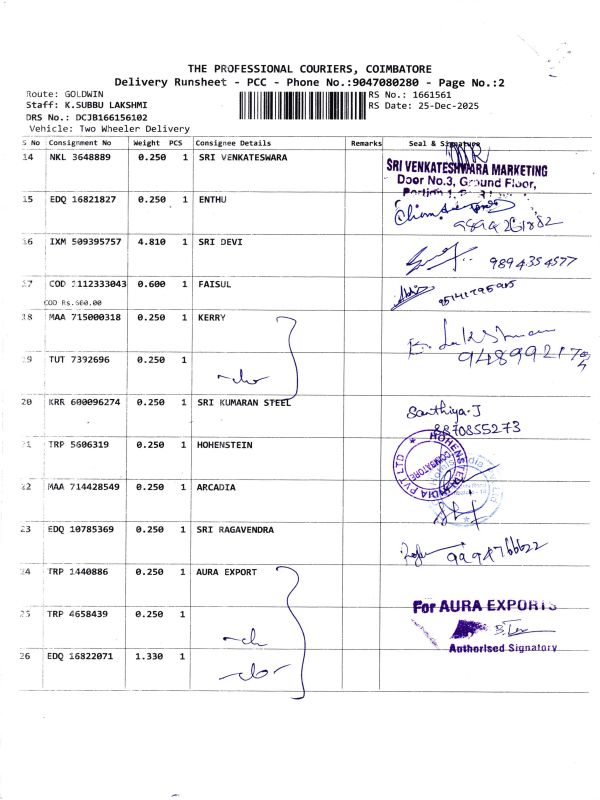 THE PROFESSIONAL COURIERS, COIMBATORE
Delivery Runsheet - PCC - Phone No.:9047080280 - Page No.:2
Route: GOLDWIN
RS No.: 1661561
Staff: K.SUBBU LAKSHMI
RS Date: 25-Dec-2025
DRS No.: DCJB166156102
Vehicle: Two Wheeler Delivery
S No Consignment No Weight PCS Consignee Details Remarks Seal & Signature
14 NKL 3648889 0.250 1 SRI VENKATESWARA
SRI VENKATESHWARA MARKETING
Door No.3, Ground Floor,
15 EDQ 16821827 0.250 1 ENTHU
16 IXM 509395757 4.810 1 SRI DEVI
9894354577
17 COD 1112333043 0.600 1 FAISUL
COD Rs.600.00
18 MAA 715000318 0.250 1 KERRY
19 TUT 7392696 0.250 1
20 KRR 600096274 0.250 1 SRI KUMARAN STEEL
Santhiya.J
8870855273
21 TRP 5606319 0.250 1 HOHENSTEIN
HOHENSTEIN INDIA PVT LTD
COIMBATORE
22 MAA 714428549 0.250 1 ARCADIA
23 EDQ 10785369 0.250 1 SRI RAGAVENDRA
9994766622
24 TRP 1440886 0.250 1 AURA EXPORT
25 TRP 4658439 0.250 1
For AURA EXPORTS
Authorised Signatory
26 EDQ 16822071 1.330 1